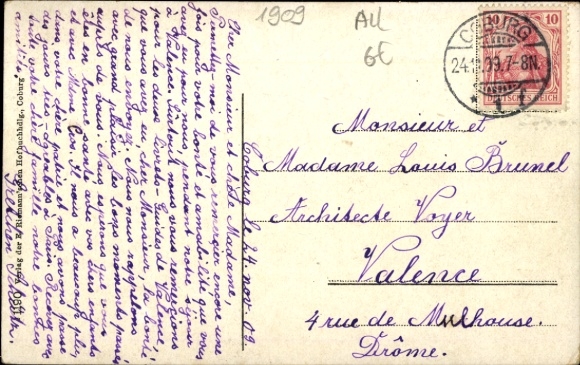 1909
All
6E
10 10
DEUTSCHES REICH
COBURG
24.11.09.7-8N.
* 1 *
Cher Monsieur et chère Madame,
Permettez-moi de vous remercier encore une
fois pour la bonté et amabilité que vous
avez eu pour nous pendant notre séjour
à Valence. Surtout nous vous remercions
pour les deux Livrets-Guides de Valence,
que vous avez eu, cher Monsieur, la bonté
de nous envoyer. Nous nous rappelons
avec grand plaisir les bons moments passés
auprès de vous. Nous espérons que vous
êtes en bonne santé avec vos chers enfants
et avec Mme
dans votre chère patrie et nous avons passé
des jours très agréables à
votre chère famille notre bonne
amitié.
Coburg, le 24 nov. 09.
Monsieur et
Madame Louis Brunel
Architecte Voyer
Valence
4 rue de Mulhouse.
Drôme.
Verlag der E. Riemann'schen Hofbuchhdlg., Coburg